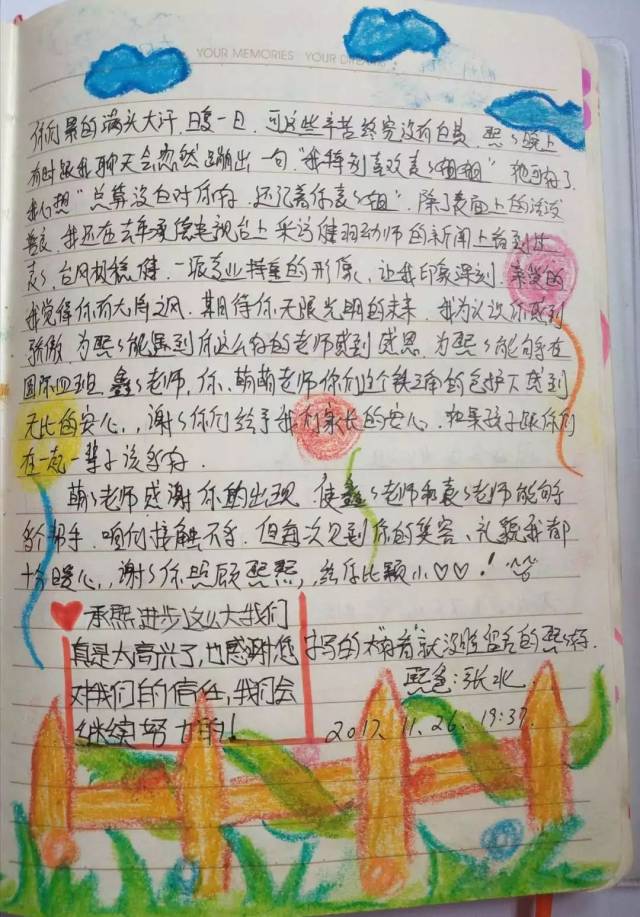 YOUR MEMORIES YOUR
你们累的满头大汗,日复一日,可这些辛苦终究没有白费,熙熙晚上
有时跟我聊天会忽然蹦出一句"我特别喜欢袁袁姐姐"把我
我心想"总算没白对你好,还记着你袁袁姐",除了表面上的活泼
善良,我还在去年承德电视台上采访健羽幼师的新闻上看到过
袁袁,台风极稳健,一派专业持重的形像,让我印象深刻,亲爱的
我觉得你有大角之风,期待你无限光明的未来,我为认识你感到
骄傲,为熙熙能遇到你这么好的老师感到感恩,为熙熙能够在
国际四班,鑫鑫老师,你,萌萌老师你们这个铁三角的包护下感到
无比的安心,,谢谢你们给予我们家长的安心,如果孩子跟你们
在一起一辈子该多好.
萌萌老师感谢你的出现,使鑫鑫老师和袁袁老师能够多
个帮手,咱们接触不多,但每次见到你的笑容、礼貌我都
十分暖心,,谢谢你照顾熙熙,,给你比颗小♡♡!
承熙进步这么大我们
真是太高兴了,也感谢您
对我们的信任,我们会
继续努力的!
字写的太 的熙爸.
熙爸:张
2017.11.26.19:37.